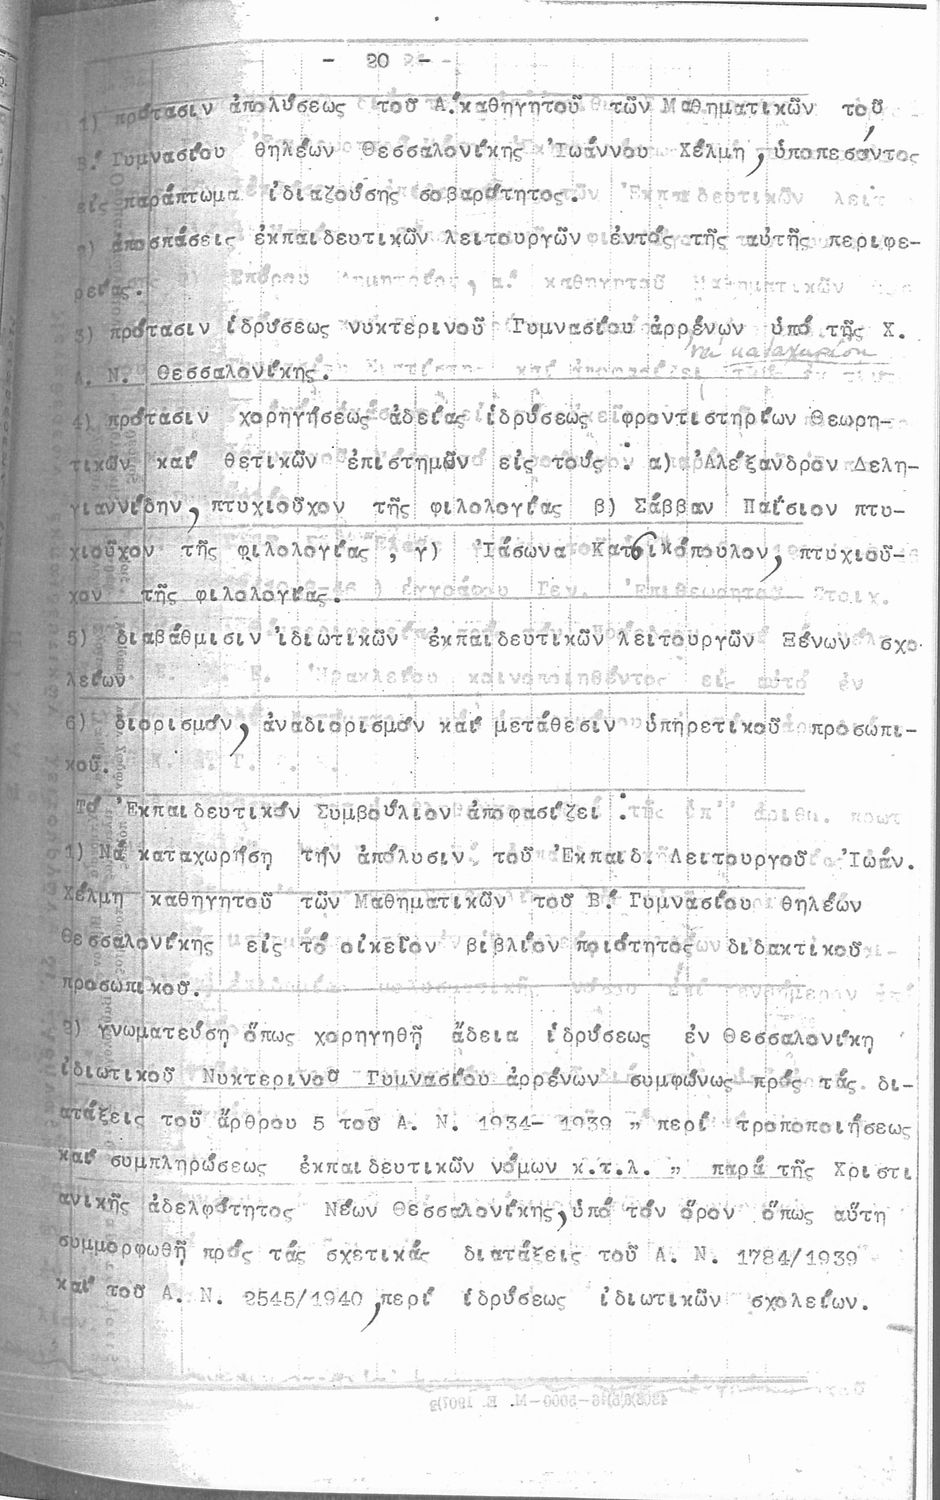 - 20 -
1) πρότασιν ἀπολύσεως τοῦ Α.΄καθηγητοῦ τῶν Μαθηματικῶν τοῦ
Β.΄ Γυμνασίου θηλέων Θεσσαλονίκης Ἰωάννου Χέλμη, ὑποπεσόντος
εἰς παράπτωμα ἰδιαζούσης σοβαρότητος.
2) ἀποσπάσεις ἐκπαιδευτικῶν λειτουργῶν ἐντός τῆς αὐτῆς περιφε-
ρείας.
3) πρότασιν ἱδρύσεως νυκτερινοῦ Γυμνασίου ἀρρένων ὑπό τῆς Χ.
νά καταχωρίση
Α. Ν. Θεσσαλονίκης.
4) πρότασιν χορηγήσεως ἀδείας ἱδρύσεως φροντιστηρίων Θεωρη-
τικῶν καί θετικῶν ἐπιστημῶν εἰς τούς : α) Ἀλέξανδρον Δελη-
γιαννίδην, πτυχιοῦχον τῆς φιλολογίας β) Σάββαν Παίσιον πτυ-
χιοῦχον τῆς φιλολογίας , γ) Ἰάσωνα Κατσικόπουλον, πτυχιοῦ-
χον τῆς φιλολογίας.
5) διαβάθμισιν ἰδιωτικῶν ἐκπαιδευτικῶν λειτουργῶν Ξένων σχο-
λείων
6) διορισμόν, ἀναδιορισμόν καί μετάθεσιν ὑπηρετικοῦ προσωπι-
κοῦ.
Τό Ἐκπαιδευτικόν Συμβούλιον ἀποφασίζει :
1) Νά καταχωρήση τήν ἀπόλυσιν τοῦ Ἐκπαιδ. Λειτουργοῦ Ἰωάν.
Χέλμη καθηγητοῦ τῶν Μαθηματικῶν τοῦ Β.΄ Γυμνασίου θηλέων
Θεσσαλονίκης εἰς τό οἰκεῖον βιβλίον ποιότητος διδακτικοῦ
προσωπικοῦ.
3) γνωματεύση ὅπως χορηγηθῆ ἄδεια ἱδρύσεως ἐν Θεσσαλονίκη
ἰδιωτικοῦ Νυκτερινοῦ Γυμνασίου ἀρρένων συμφώνως πρός τάς δι-
ατάξεις τοῦ ἄρθρου 5 τοῦ Α. Ν. 1934- 1939 „ περί τροποποιήσεως
καί συμπληρώσεως ἐκπαιδευτικῶν νόμων κ.τ.λ. „ παρά τῆς Χριστι
ανικῆς ἀδελφότητος Νέων Θεσσαλονίκης, ὑπό τόν ὅρον ὅπως αὕτη
συμμορφωθῆ πρός τάς σχετικάς διατάξεις τοῦ Α. Ν. 1784/1939
καί τοῦ Α. Ν. 2545/1940 ,περί ἱδρύσεως ἰδιωτικῶν σχολείων.